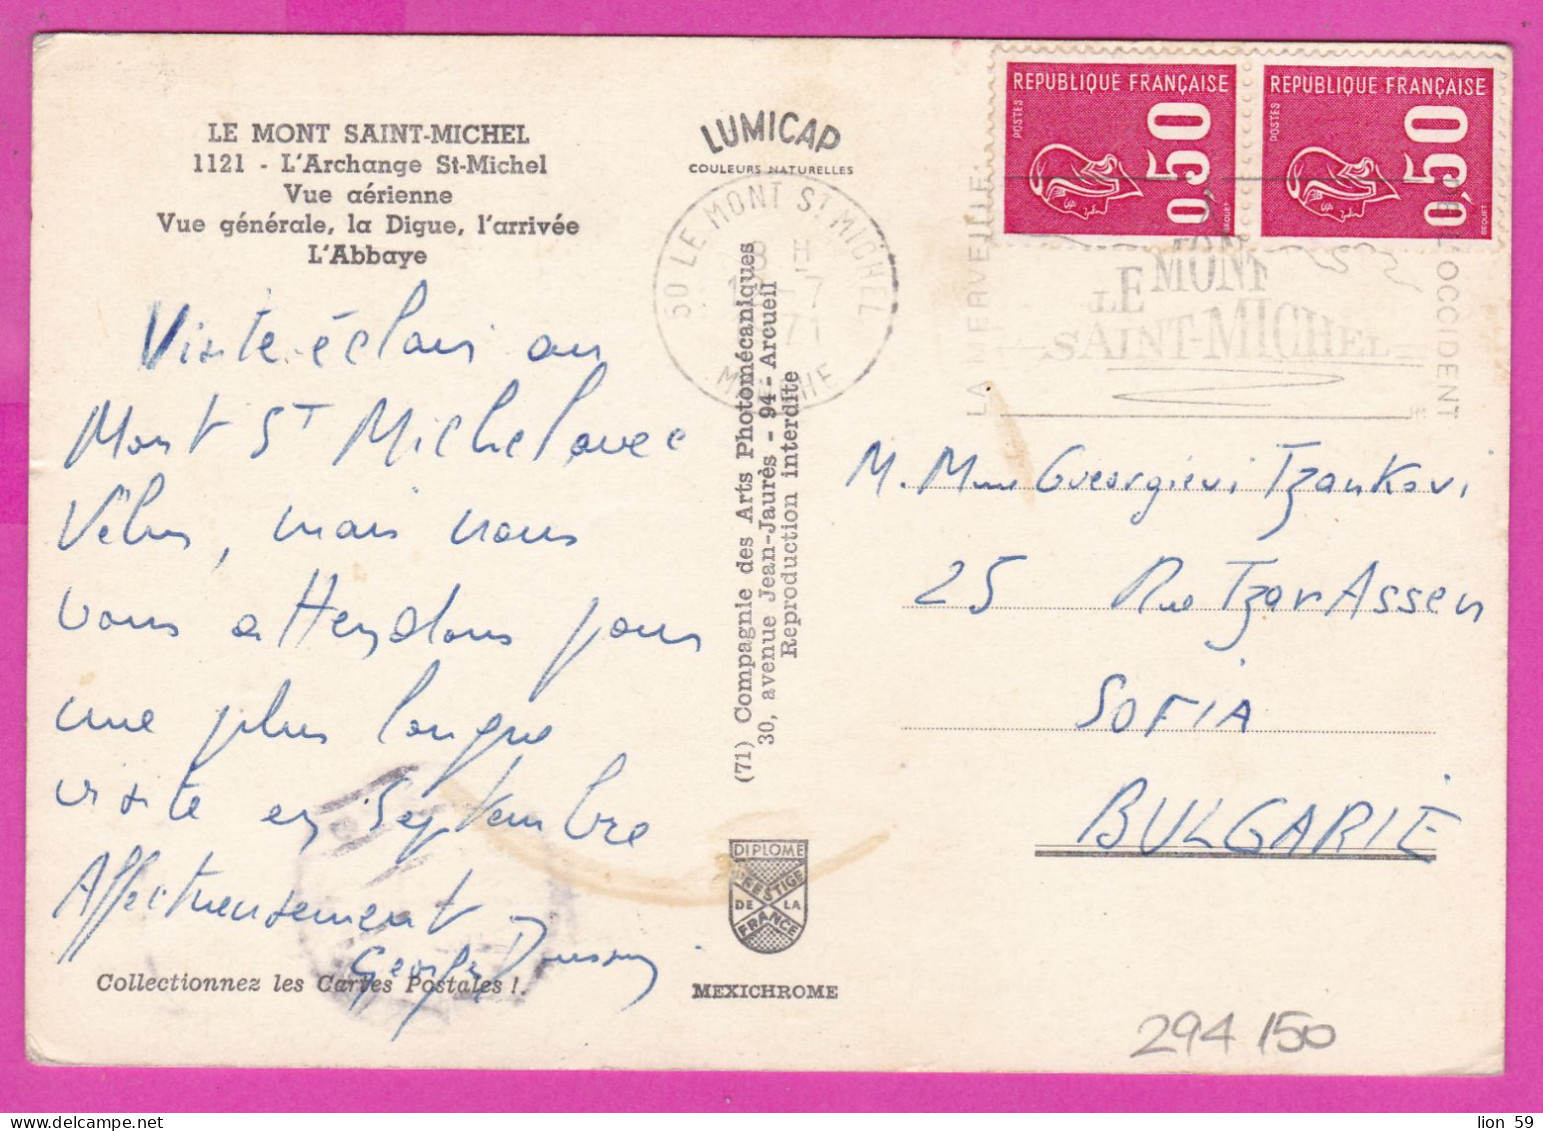 LE MONT SAINT-MICHEL
1121 - L'Archange St-Michel
Vue aérienne
Vue générale, la Digue, l'arrivée
L'Abbaye
Visite éclair au
Mont St Michel avec
mais nous
vous attendons pour
une plus longue
visite en Septembre
Affectueusement
Collectionnez les Cartes Postales !
LUMICAP
COULEURS NATURELLES
50 LE MONT ST MICHEL
H
-7
71
MANCHE
(71) Compagnie des Arts Photomécaniques
30, avenue Jean-Jaurès - 94 - Arcueil
Reproduction interdite
DIPLOME
PRESTIGE
DE LA
FRANCE
MEXICHROME
REPUBLIQUE FRANÇAISE
POSTES
0,50
BEQUET
REPUBLIQUE FRANÇAISE
POSTES
0,50
BEQUET
LA MERVEILLE
LE MONT
SAINT-MICHEL
DE L'OCCIDENT
M. Mme Gueorguievi Tzankovi
25 Rue Tzar Assen
SOFIA
BULGARIE
294150
lion 59